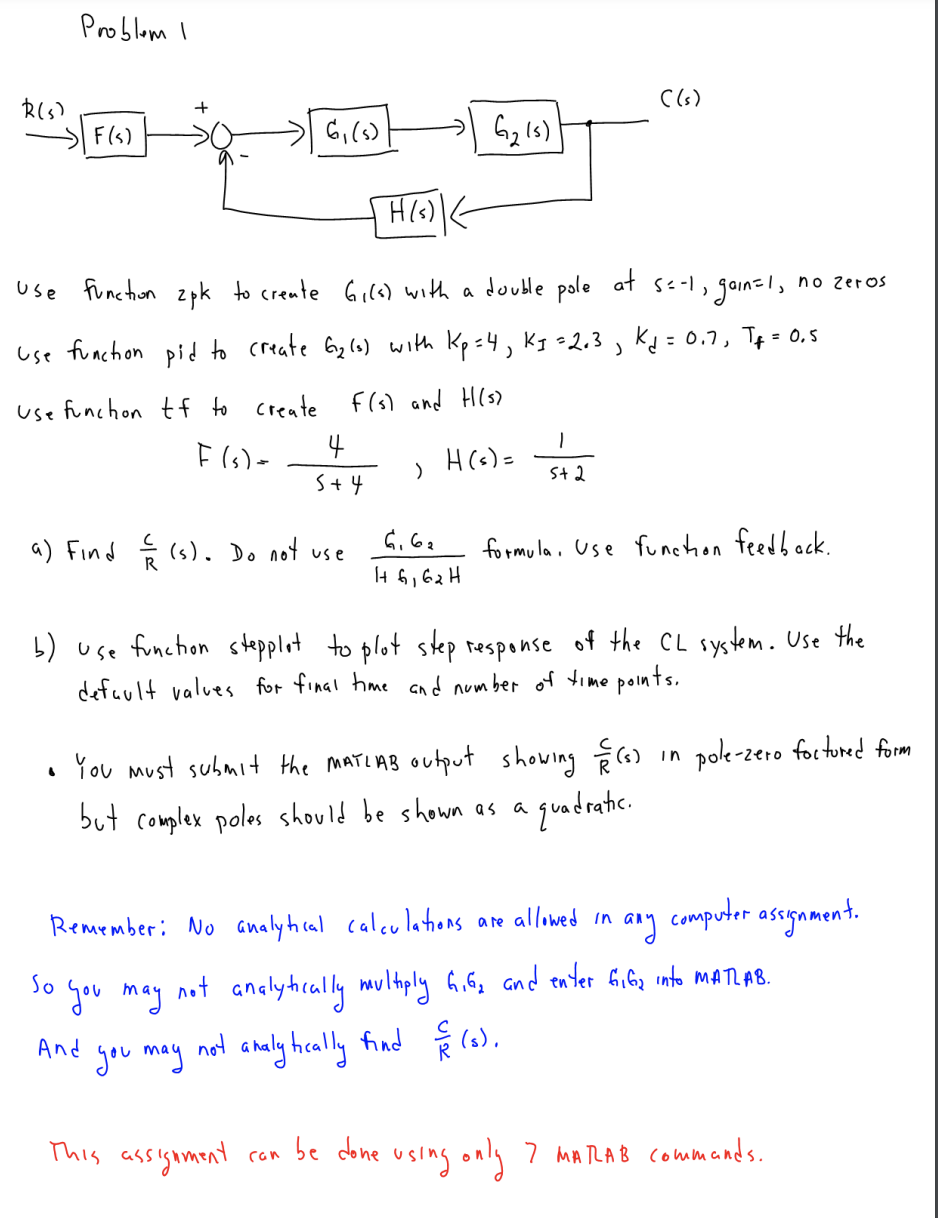 Problem 1
R(s)
F(s)
+
-
G₁(s)
G₂(s)
C(s)
H(s)
Use function zpk to create G₁(s) with a double pole at s=-1, gain=1, no zeros
Use function pid to create G₂(s) with Kp=4, KI=2.3, Kd=0.7, Tf=0.5
Use function tf to create F(s) and H(s)
F(s)= 4/(s+4), H(s)= 1/(s+2)
a) Find C/R (s). Do not use G₁G₂/(1+G₁G₂H) formula. Use function feedback.
b) Use function stepplot to plot step response of the CL system. Use the
default values for final time and number of time points.
• You must submit the MATLAB output showing C/R (s) in pole-zero factored form
but complex poles should be shown as a quadratic.
Remember: No analytical calculations are allowed in any computer assignment.
So you may not analytically multiply G₁G₂ and enter G₁G₂ into MATLAB.
And you may not analytically find C/R (s).
This assignment can be done using only 7 MATLAB commands.